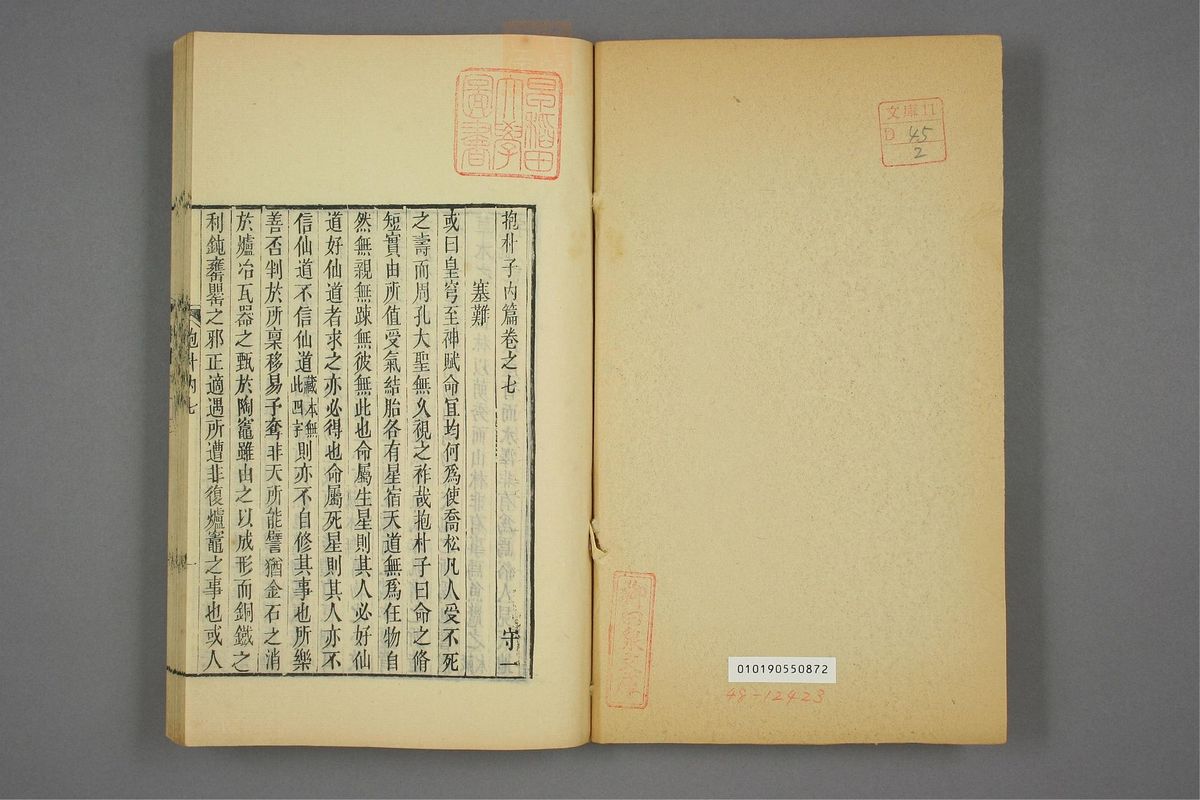 文庫11
D 45
2
010190550872
48-12423
早稲田
大學
圖書
抱朴子內篇卷之七 守一
塞難
或曰皇穹至神賦命宜均何爲使喬松凡人受不死
之壽而周孔大聖無久視之祚哉抱朴子曰命之脩
短實由所値受氣結胎各有星宿天道無爲任物自
然無親無疎無彼無此也命屬生星則其人必好仙
道好仙道者求之亦必得也命屬死星則其人亦不
信仙道不信仙道藏本無此四字則亦不自修其事也所樂
善否判於所稟移易予奪非天所能譬猶金石之消
於爐冶瓦器之甄於陶竈雖由之以成形而銅鐵之
利鈍罋罌之邪正適遇所遭非復爐竈之事也或人
抱朴內七
一